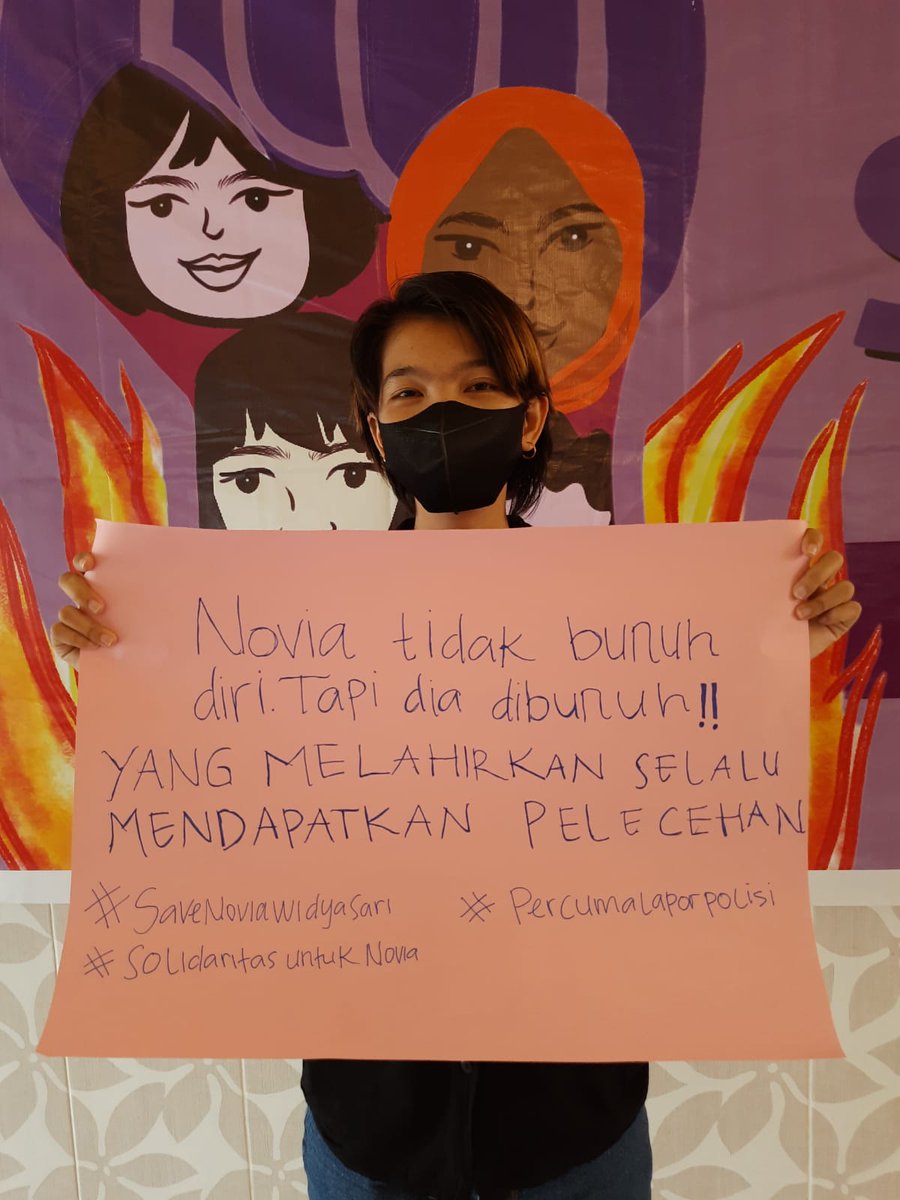 Novia tidak bunuh
diri. Tapi dia dibunuh!!
YANG MELAHIRKAN SELALU
MENDAPATKAN PELECEHAN
#SaveNoviawidyasari #Percumalaporpolisi
#SolidaritasuntukNovia